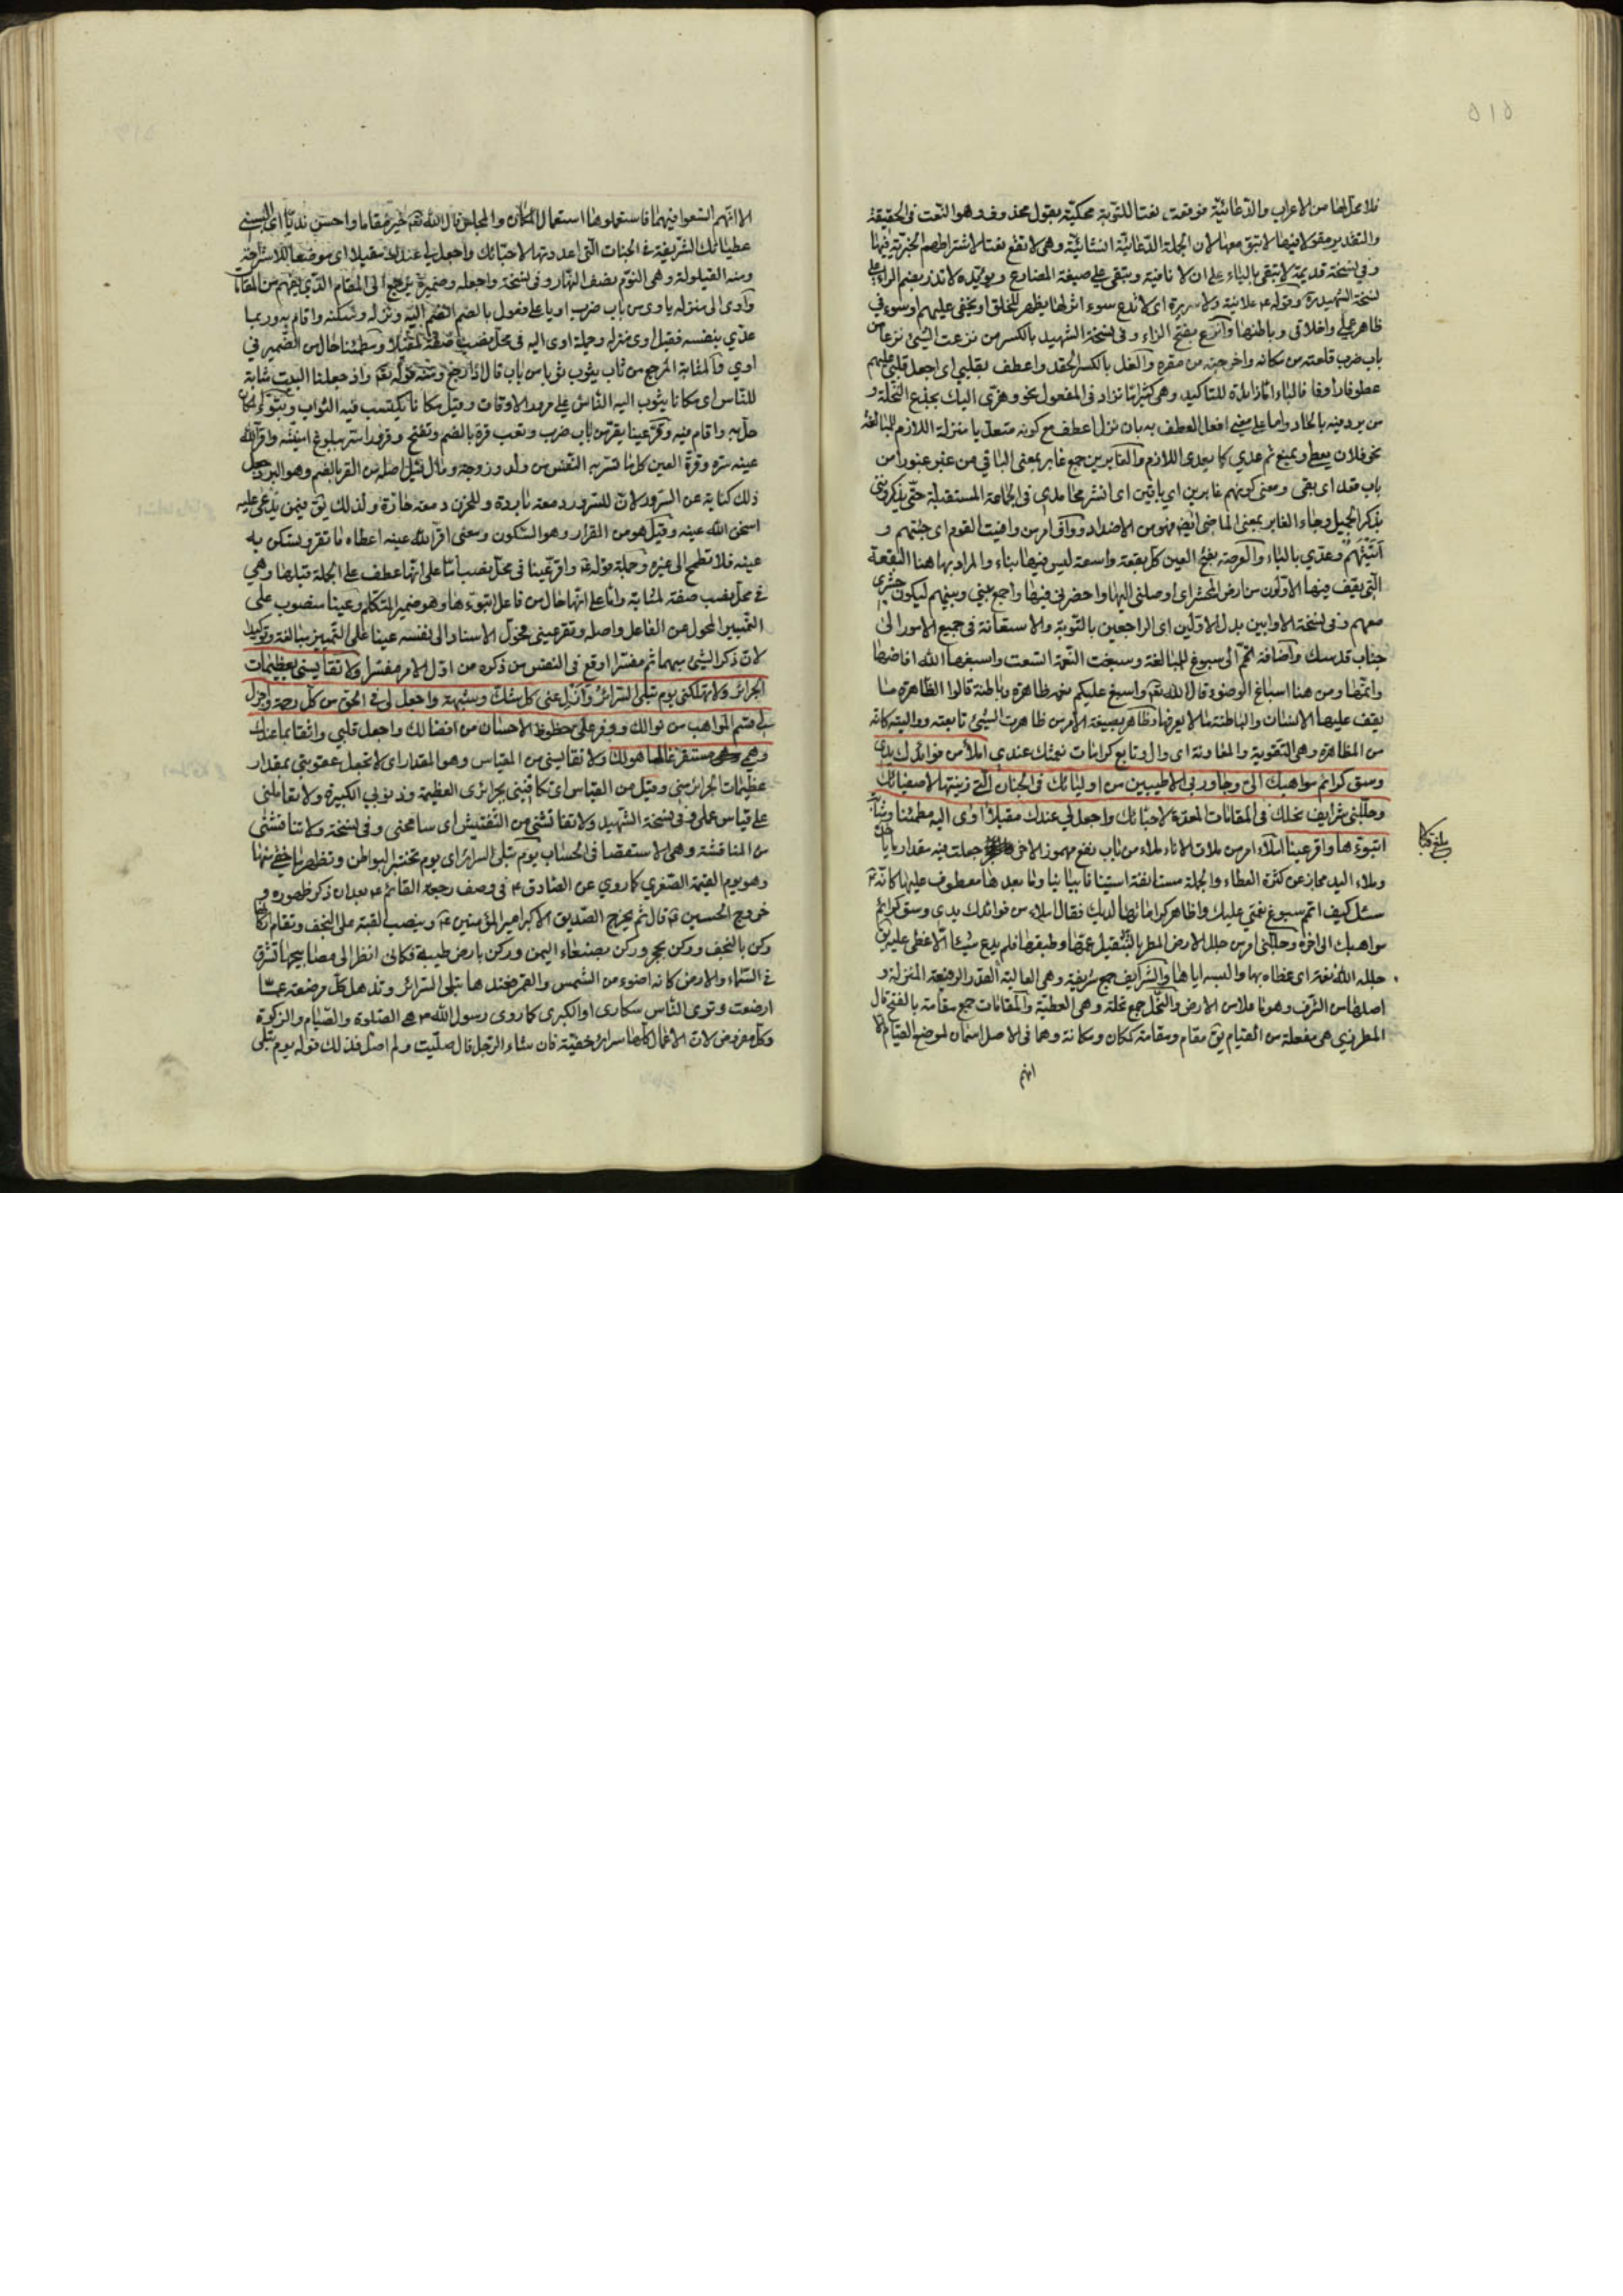 ٥١٥
فلا محل لها من الاعراب والدعائية فوقعت نعتا للتوبة محكية بقول محذوف وهو النعت في الحقيقة
والتقدير مقولا فيها لا تبق معها لان الجملة الدعائية انشائية وهي لا تقع نعتا لاشتراطهم الخبرية فيها
وفي نسخة قديمة لا يتقى بالياء على ان لا نافية ويتقى على صيغة المضارع ويؤيده لا تذر بضم الراء على
نسخة الشهيد ره وقوله ع علانية ولا سريرة اى لا تدع سوء اثر لها يظهر للخلق او يخفى عليهم او سوء في
ظاهر عملي واخلاقي وباطنها وانزع بفتح الزاء وفى نسخة الشهيد بالكسر من نزعت الشئ نزعا من
باب ضرب قلعته من مكانه واخرجته من مقره والغل بالكسر الحقد واعطف بقلبي اى اجعل قلبي عليهم
عطوفا رأوفا فالباء اما زائدة للتاكيد وهي كثيرا ما تزاد في المفعول نحو وهزي اليك بجذع النخلة و
من يرد فيه بالحاد واما على معنى افعل العطف به بان نزل اعطف مع كونه متعديا منزلة اللازم للمبالغة
نحو فلان يعطي ويمنع ثم عدي كما يعدى اللازم والغابرين جمع غابر بمعنى الباقي من غبر غبورا من
باب قعد اى بقى ومعنى كونهم غابرين اي باقين اى انشر محامدى في الجماعة المستقبلة حتى يذكروننى
بذكر الجميل وجاء الغابر بمعنى الماضى ايض فهو من الاضداد وواف امر من وافيت القوم اى جئتهم و
اتيتهم وعدي بالباء والعرصة بفتح العين كل بقعة واسعة ليس فيها بناء والمراد بها هنا البقعة
التي يقف فيها الاولون من ارض المحشر اى اوصلنى اليها واحضرني فيها واجمع بيني وبينهم ليكون حشري
معهم وفى نسخة الاوابين بدل الاولين اى الراجعين بالتوبة والاستعانة فى جميع الامور الى
جناب قدسك واضافة اتم الى سبوغ للمبالغة وسبغت النعمة اتسعت واسبغها الله افاضها
واتمها ومن هنا اسباغ الوضوء قال الله تعم واسبغ عليكم نعمه ظاهرة وباطنة قالوا الظاهرة ما
يقف عليها الانسان والباطنة ما لا يعرفها وظاهر بصيغة الامر من ظاهرت الشئ تابعته وواليته كانه
من المظاهرة وهى التقوية والمعاونة اى وال وتابع كرامات نعمتك عندي املأ من فوائدك يدى
وسق كرائم مواهبك الى وجاور بى الاطيبين من اوليائك فى الجنان التى زينتها لاصفيائك
وجللنى شرايف نحلك فى المقامات المعدة لاحبائك واجعل لي عندك مقيلا اوى اليه مطمئنا ومثابة
اتبوءها واقر عينا املأ امر من ملات الاناء ملاء من باب نفع مهموز الاخر جعلت فيه مقدار ما ياخذه
وملاء اليد مجاز عن كثرة العطاء والجملة مستانفة استينافا بيانيا وما بعدها معطوف عليها كانه ع
سئل كيف اتم سبوغ نعمتى عليك واظاهر كراماتها لديك فقال املاء من فوائدك يدى وسق كرائم
مواهبك الى اخره وجللنى امر من جلل الارض المطر بالتثقيل عمها وطبقها فلم يدع شيئا الا غطى عليه يق
جلله الله نعمة اى غطاه بها والبسه اياها والشرايف جمع شريفة وهى العالية القدر الرفيعة المنزلة و
اصلها من الشرف وهو ما علا من الارض والنحل جمع نحلة وهى العطية والمقامات جمع مقامة بالفتح قال
المطرزي هى مفعلة من القيام يق مقام ومقامة كمكان ومكانة وهما فى الاصل اسمان لموضع القيام الا
انهم
الا انهم اتسعوا فيهما فاستعملوهما استعمال المكان والمجلس قال الله تعم خير مقاما واحسن نديا اى البسنى
عطياتك الشريفة فى الجنات التى اعددتها لاحبائك واجعل لي عندك مقيلا اى موضعا للاستراحة
ومنه القيلولة وهى النوم نصف النهار وفى نسخة واجعله وضميره يرجع الى المقام الذي يفهم من المقامات
وآوى الى منزله ياوى من باب ضرب اويا على فعول بالضم انضم اليه ونزله وسكنه واقام به وربما
عدي بنفسه فقيل اوى منزله وجملة اوى اليه فى محل نصب صفة لمقيلا ومطمئنا حال من الضمير في
اوي والمثابة المرجع من ثاب يثوب ثوبا من باب قال اذا رجع ومنه قوله تعم واذ جعلنا البيت مثابة
للناس اى مكانا يثوب اليه الناس على مر الاوقات وقيل مكانا يكتسب فيه الثواب وتبوء المكان
حل به واقام فيه وقر عينا يقر من باب ضرب وتعب قرة بالضم وتفتح وقرورا سر ببلوغ امنيته واقر الله
عينه سره وقرة العين كل ما تسر به النفس من ولد وزوجة ومال قيل اصله من القر بالضم وهو البرد وجعل
ذلك كناية عن السرور لان للسرور دمعة باردة وللحزن دمعة حارة ولذلك يق فيمن يدعى عليه
اسخن الله عينه وقيل هو من القرار وهو السكون ومعنى اقر الله عينه اعطاه ما تقر وتسكن به
عينه فلا تطمح الى غيره وجملة قوله ع واقر عينا فى محل نصب اما على انها عطف على الجملة قبلها وهي
فى محل نصب صفة لمثابة واما على انها حال من فاعل اتبوءها وهو ضمير المتكلم وعينا منصوب على
التمييز المحول عن الفاعل واصله وتقر عينى فحول الاسناد الى نفسه عينا على التمييز مبالغة وتوكيدا
لان ذكر الشئ مبهما ثم مفسرا اوقع فى النفس من ذكره من اول الامر مفسرا ولا تقايسنى بعظيمات
الجرائر ولا تهلكنى يوم تبلى السرائر وازل عنى كل شك وشبهة واجعل لى فى الحق من كل رحمة واجزل
لى قسم المواهب من نوالك ووفر على حظوظ الاحسان من افضالك واجعل قلبي واثقا بما عندك
وهمي مستفرغا لما هو لك ولا تقايسنى من المقياس وهو المقدار اى لا تجعل عقوبتى بمقدار
عظيمات الجرائر منى وقيل من القياس اى تكافينى بجرائرى العظيمة وذنوبي الكبيرة ولا تعاملنى
على قياس عملى وفى نسخة الشهيد ولا تفاتشنى من التفتيش اى سامحنى وفى نسخة ولا تناقشنى
من المناقشة وهى الاستقصا فى الحساب يوم تبلى السرائر اى يوم تختبر البواطن وتظهر ما خفى منها
وهو يوم القيمة الصغري كما روي عن الصادق ع فى وصف رجعة القائم ع بعد ان ذكر ظهوره و
خروج الحسين ع قال ثم يخرج الصديق الاكبر امير المؤمنين ع وينصب له القبة على النجف ويقام اركانها
ركن بالنجف وركن بهجر وركن بصنعاء اليمن وركن بارض طيبة فكانى انظر الى مصابيحها تشرق
فى السماء والارض كانه اضوء من الشمس والقمر فعندها تبلى السرائر وتذهل كل مرضعة عما
ارضعت وترى الناس سكارى او الكبرى كما روى رسول الله ص هى الصلوة والصيام والزكوة
وكل مفروض لان الاعمال كلها سرائر خفية فان شاء الرجل قال صليت ولم اصل فذلك قوله يوم تبلى